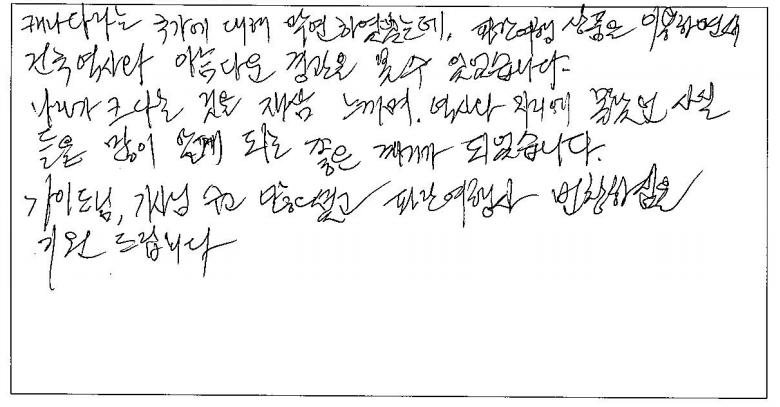 캐나다라는 국가에 대해 막연하였었는데, 파란여행 상품을 이용하면서
건국역사와 아름다운 경관을 볼 수 있었습니다.
나라가 크다는 것을 새삼 느끼며, 역사와 지리에 몰랐던 사실
들을 많이 알게 되는 좋은 계기가 되었습니다.
가이드님, 기사님 수고 많으셨고 파란여행사 번창하심을
기원 드립니다